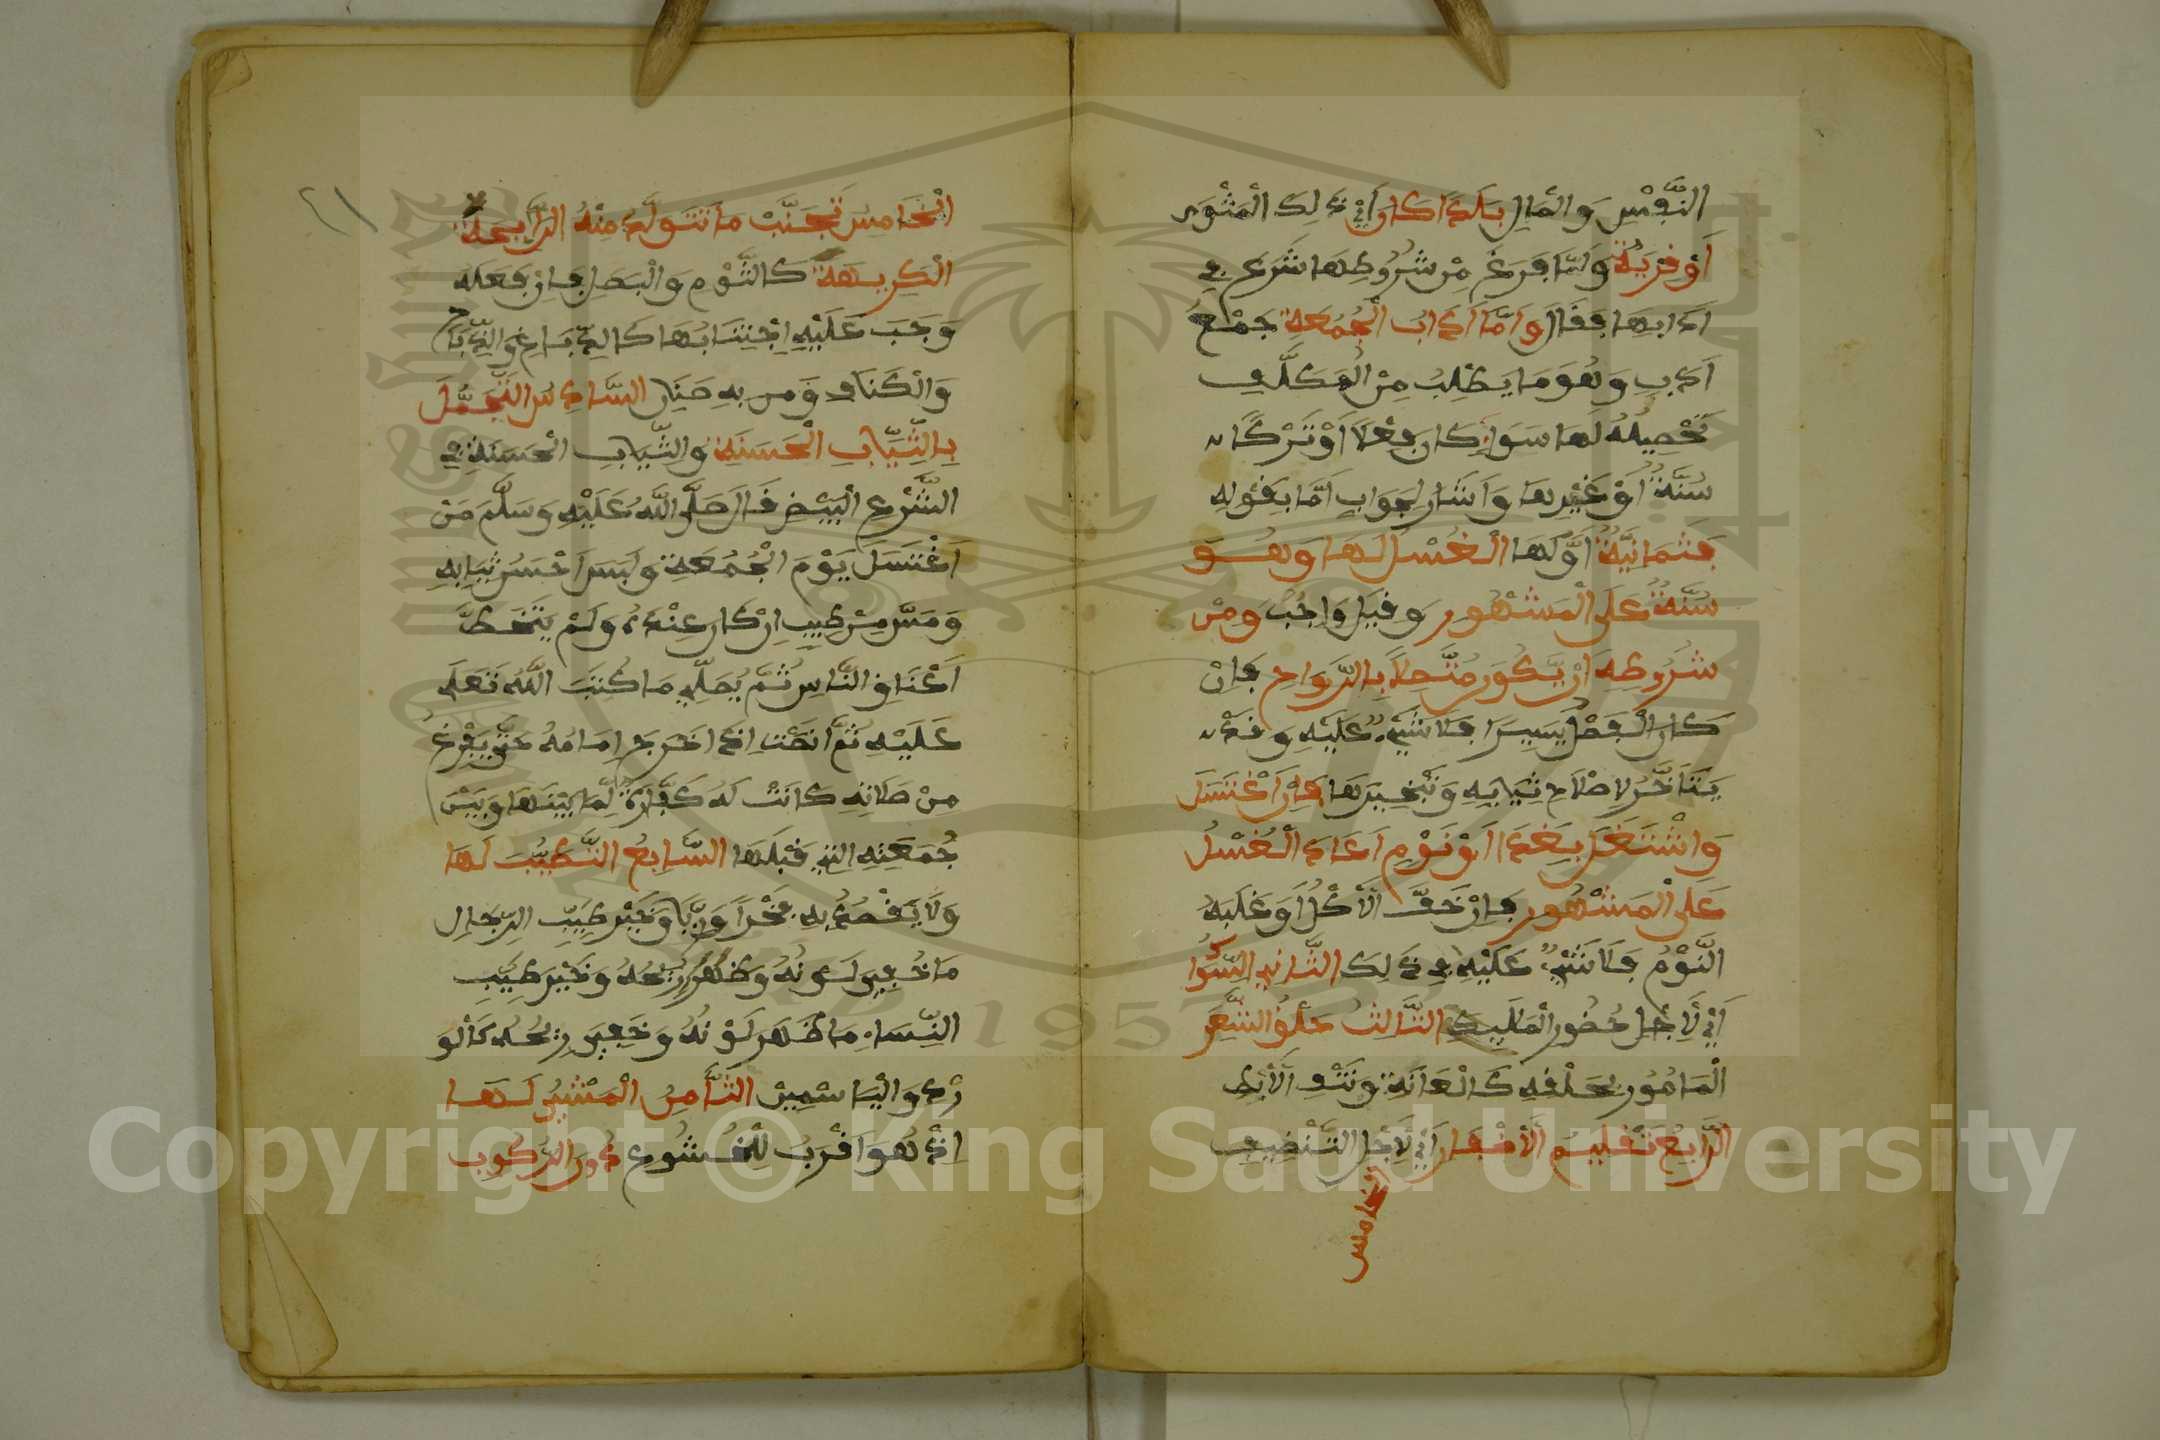 النَّفْسِ وَالمَالِ بَلَدًا كَانَ أَيْ ذَلِكَ الْمَثْوَى
أَوْ قَرْيَةً وَلَمَّا فَرَغَ مِنْ شُرُوطِهَا شَرَعَ فِي
ءَادَابِهَا فَقَالَ وَأَمَّا ءَادَابُ الْجُمُعَةِ جَمْعُ
أَدَبٍ وَهُوَ مَا يُطْلَبُ مِنَ الْمُكَلَّفِ
تَحْصِيلُهُ لَهَا سَوَاءٌ كَانَ فِعْلًا أَوْ تَرْكًا
سُنَّةً أَوْ غَيْرِهَا وَأَشَارَ لِجَوَابِ أَمَّا بِقَوْلِهِ
فَثَمَانِيَةٌ أَوَّلُهَا الْغُسْلُ لَهَا وَهُوَ
سُنَّةٌ عَلَى الْمَشْهُورِ وَقِيلَ وَاجِبٌ وَمِنْ
شُرُوطِهِ أَنْ يَكُونَ مُتَّصِلًا بِالرَّوَاحِ فَإِنْ
كَانَ الْفَصْلُ يَسِيرًا فَلَا شَيْءَ عَلَيْهِ وَقَدْ
يَتَأَخَّرُ لِإِصْلَاحِ ثِيَابِهِ وَتَبْخِيرِهَا فَإِنِ اغْتَسَلَ
وَاشْتَغَلَ بِغَدَاءٍ أَوْ نَوْمٍ أَعَادَ الْغُسْلَ
عَلَى الْمَشْهُورِ فَإِنْ خَفَّ الْأَكْلُ أَوْ غَلَبَهُ
النَّوْمُ فَلَا شَيْءَ عَلَيْهِ فِي ذَلِكَ الثَّانِي السِّوَاكُ
أَيْ لِأَجْلِ حُضُورِ الْمَلَائِكَةِ الثَّالِثُ حَلْقُ الشَّعَرِ
الْمَأْمُورِ بِحَلْقِهِ كَالْعَانَةِ وَنَتْفُ الْإِبْطِ
الرَّابِعُ تَقْلِيمُ الْأَظْفَارِ أَيْ لِأَجْلِ التَّنْظِيفِ
الخامس
٢١
الْخَامِسُ تَجَنُّبُ مَا تَتَوَلَّدُ مِنْهُ الرَّائِحَةُ
الْكَرِيهَةُ كَالثَّوْمِ وَالْبَصَلِ فَإِنْ فَعَلَهُ
وَجَبَ عَلَيْهِ اجْتِنَابُهَا كَالدَّبَّاغِ وَالذَّبَّاحِ
وَالْكَنَّافِ وَمَنْ بِهِ صُنَانٌ السَّادِسُ التَّجَمُّلُ
بِالثِّيَابِ الْحَسَنَةِ وَالثِّيَابُ الْحَسَنَةُ فِي
الشَّرْعِ الْبِيضُ قَالَ صَلَّى اللَّهُ عَلَيْهِ وَسَلَّمَ مَنْ
اغْتَسَلَ يَوْمَ الْجُمُعَةِ وَلَبِسَ أَحْسَنَ ثِيَابِهِ
وَمَسَّ مِنْ طِيبٍ إِنْ كَانَ عِنْدَهُ وَلَمْ يَتَخَطَّ
أَعْنَاقَ النَّاسِ ثُمَّ يُصَلِّي مَا كَتَبَ اللَّهُ تَعَلَى
عَلَيْهِ ثُمَّ أَنْصَتَ إِذَا خَرَجَ إِمَامُهُ حَتَّى يَفْرُغَ
مِنْ صَلَاتِهِ كَانَتْ لَهُ كَفَّارَةً لِمَا بَيْنَهَا وَبَيْنَ
جُمُعَتِهِ الَّتِي قَبْلَهَا السَّابِعُ التَّطَيُّبُ لَهَا
وَلَا يَقْصِدُ بِهِ فَخْرًا وَرِيَاءً وَخَيْرُ طِيبِ الرِّجَالِ
مَا خَفِيَ لَوْنُهُ وَظَهَرَ رِيحُهُ وَخَيْرُ طِيبِ
النِّسَاءِ مَا ظَهَرَ لَوْنُهُ وَخَفِيَ رِيحُهُ كَالْوَ
رْدِ وَالْيَاسْمِينِ الثَّامِنُ الْمَشْيُ لَهَا
إِذْ هُوَ أَقْرَبُ لِلْخُشُوعِ دُونَ الرُّكُوبِ
1957
Copyright © King Saud University